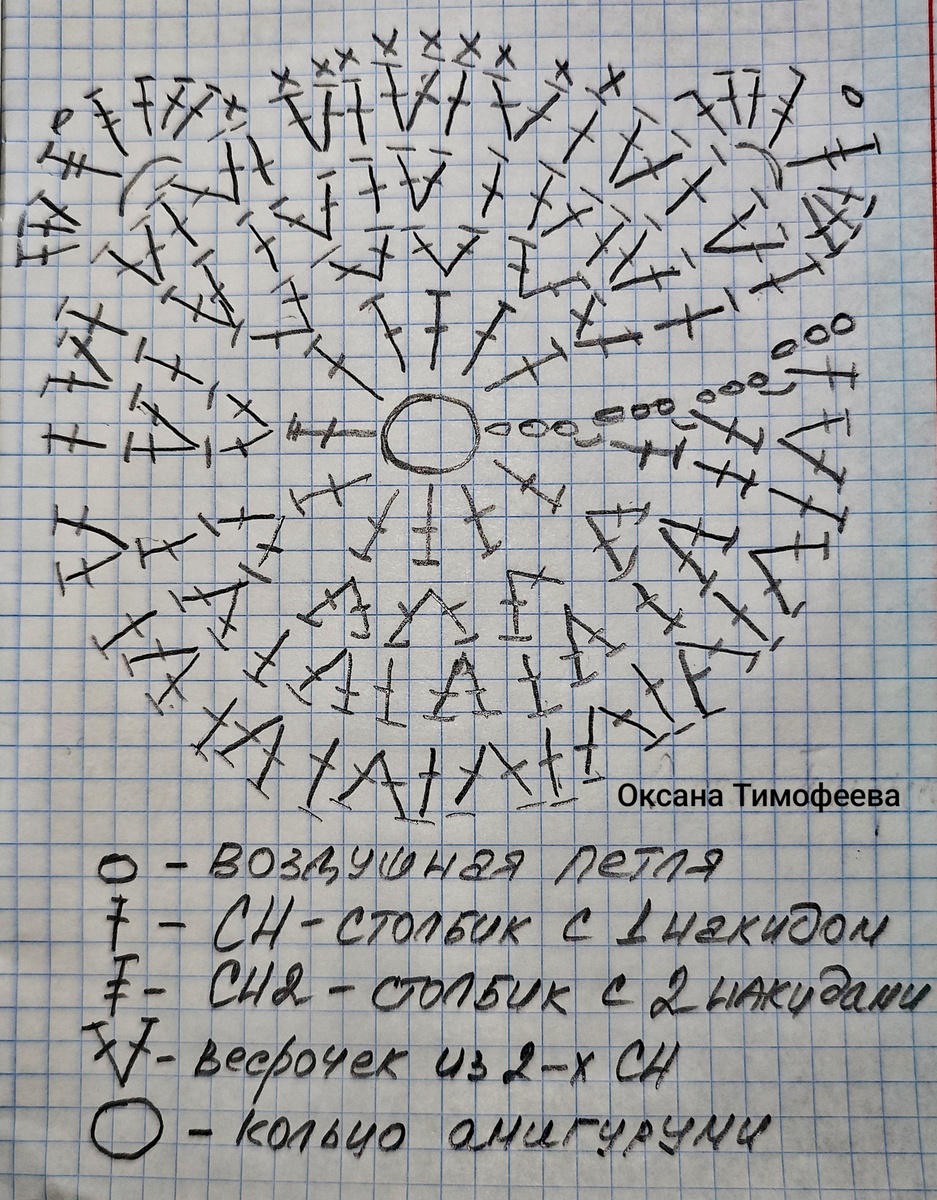 Оксана Тимофеева
О - воздушная петля
СН - столбик с 1 накидом
СН2 - столбик с 2 накидами
- веерочек из 2-х СН
- кольцо амигуруми